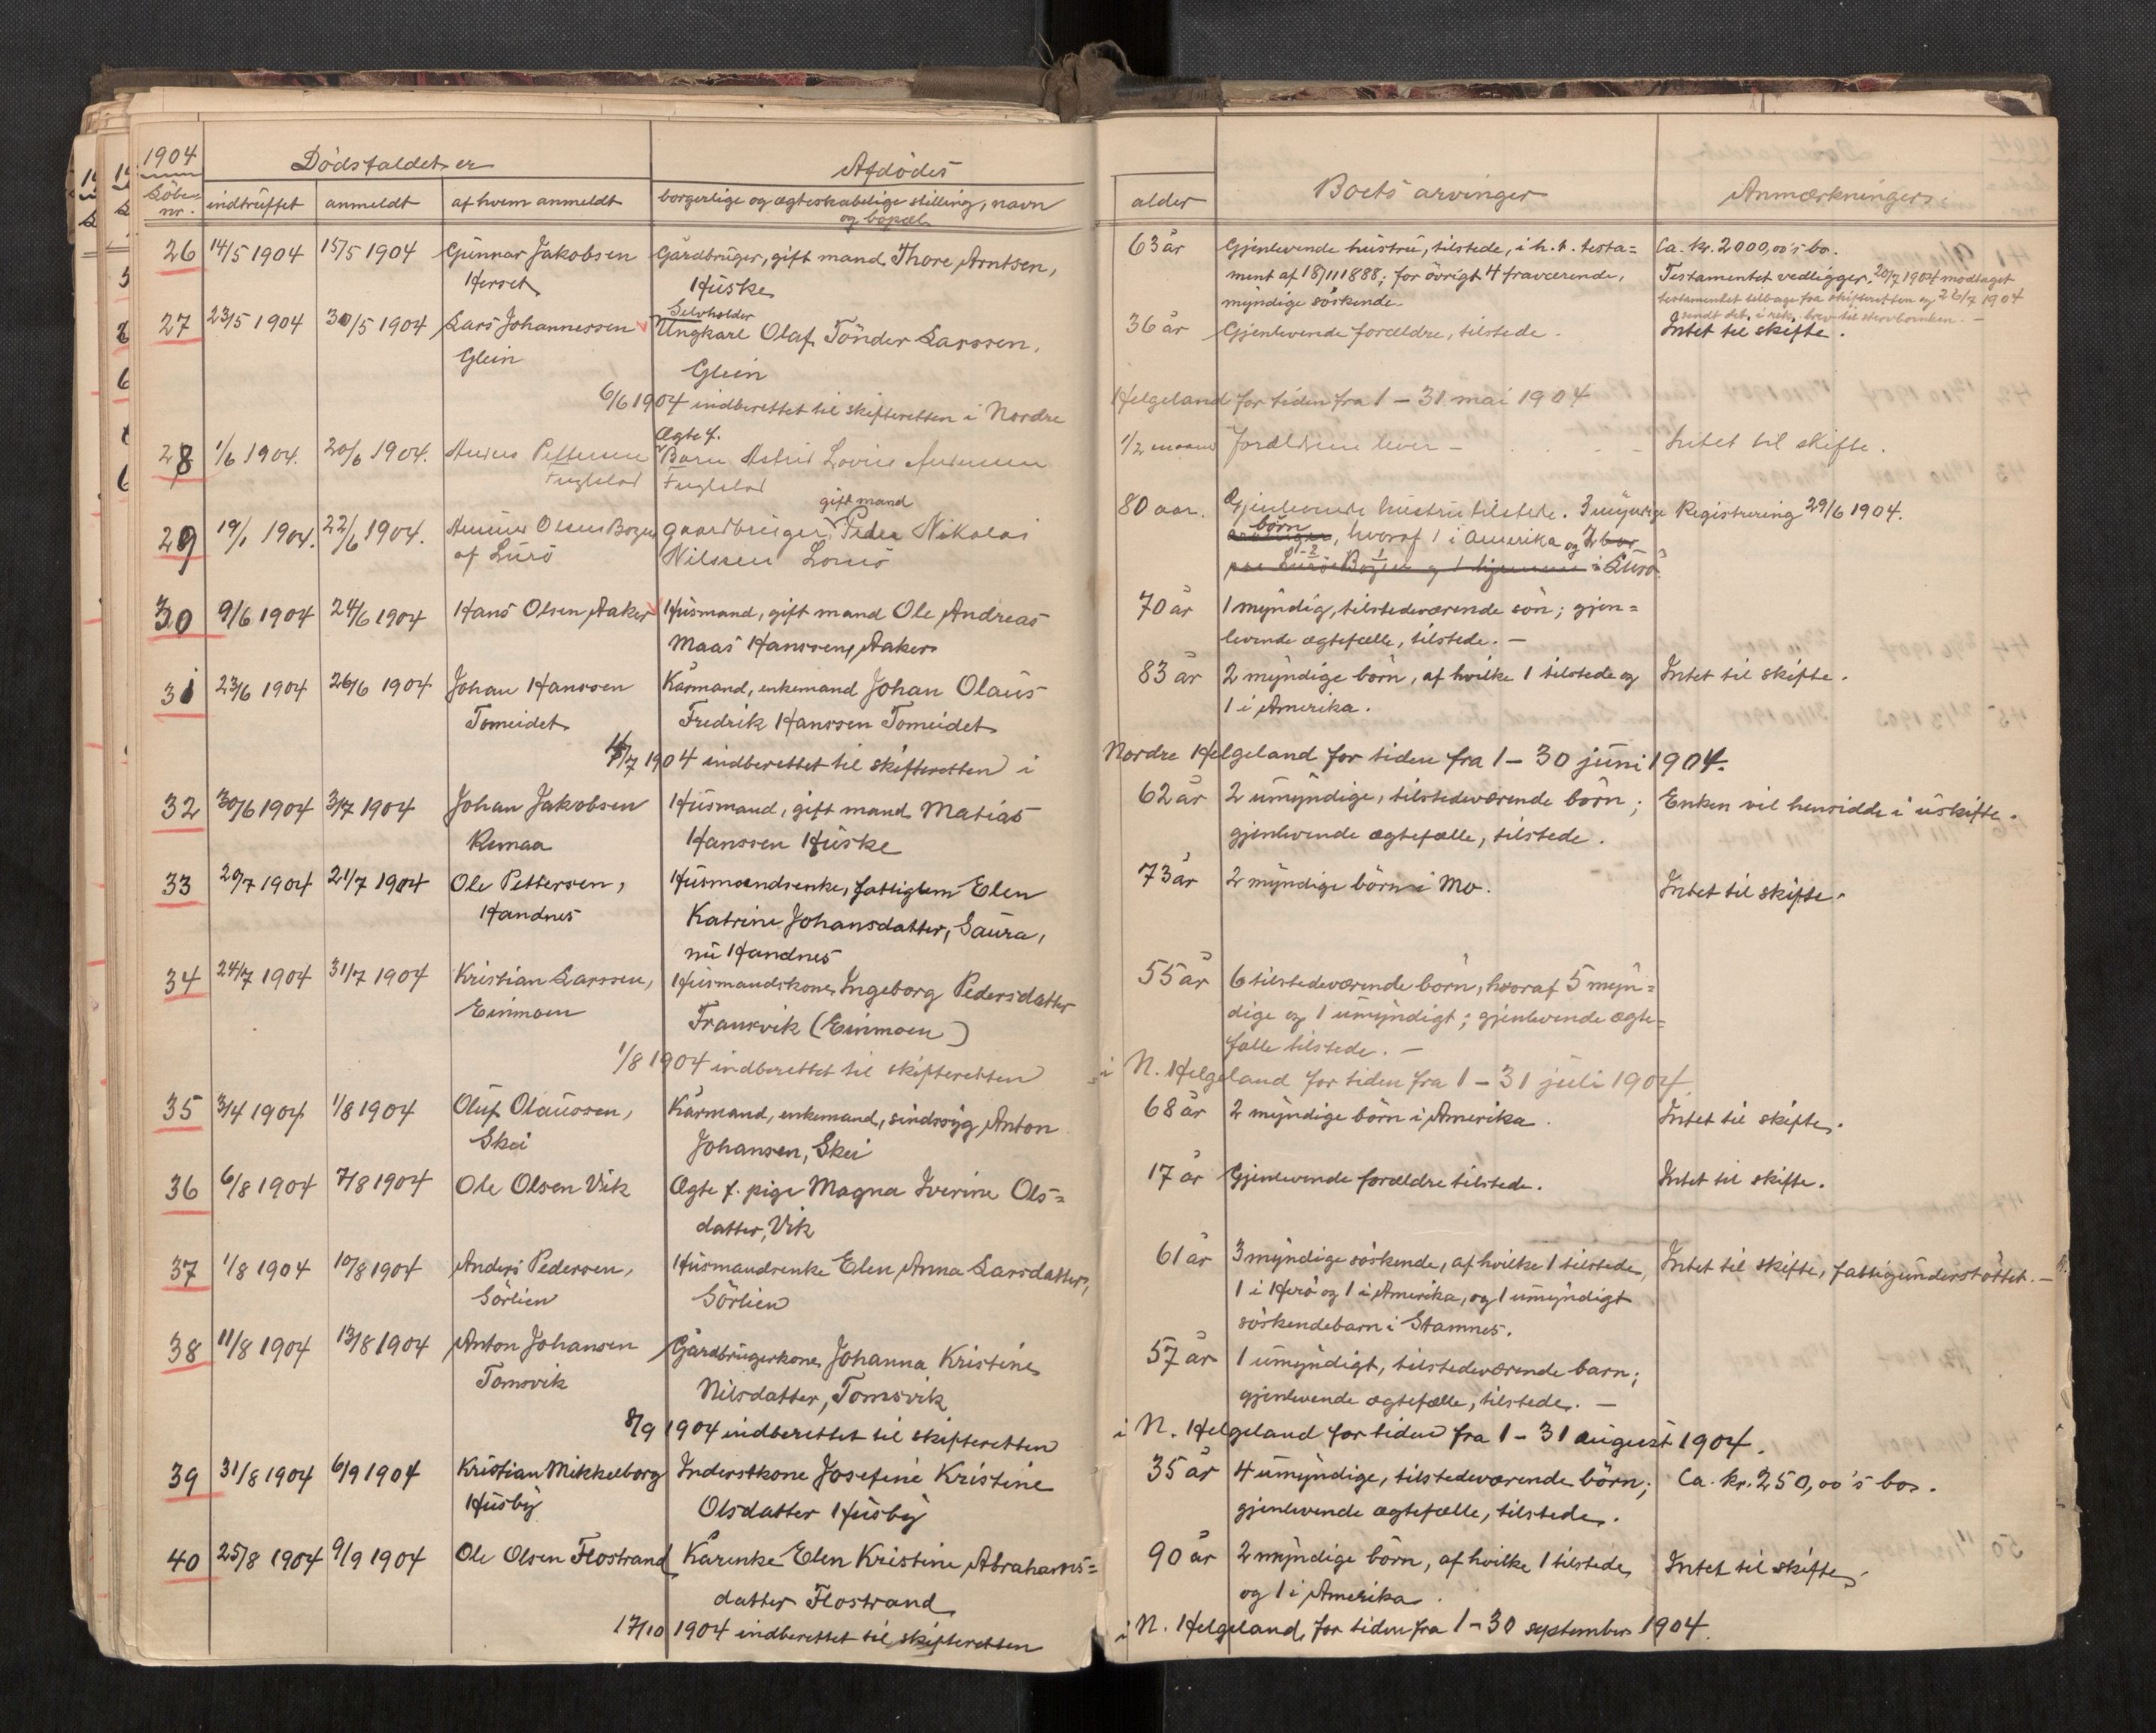 1904
Dödsfaldet er
Afdödes
Löbe-
nr.
indtruffet
anmeldt
af hvem anmeldt
borgerlige og ægteskabelige stilling, navn
og bopæl
alder
Boets arvinger
Anmærkninger
26 14/5 1904 15/5 1904 Gunnar Jakobsen Gårdbruger, gift mand Thore Arntsen, 63 år Gjenlevende hustru, tilstede, i h. t. testa= Ca. kr. 2000,00's bo.
Herset Huske ment af 18/11 1888; for övrigt 4 fraværende, Testamentet vedligger. 20/7 1904 modtaget
myndige söskende. testamentet tilbage fra skifteretten og 26/7 1904
sendt det i rek. brev til stervboenken. —
Selvholder
27 23/5 1904 30/5 1904 Lars Johannessen Ungkarl Olaf Tönder Larssen, 36 år Gjenlevende forældre, tilstede. Intet til skifte.
Glein Glein
6/6 1904 indberettet til skifteretten i Nordre Helgeland for tiden fra 1 – 31 mai 1904
Ægte f.
28 1/6 1904. 20/6 1904. Pettersen Barn Astrid Lovise 1/2 maaned Forældrene lever – Intet til skifte.
Fuglstad Fuglstad
gift mand
29 19/1 1904. 22/6 1904. Olsen Bogen gaardbruger Peder Nikolai 80 aar. Gjenlevende hustru tilstede. 3 myndige Registrering 29/6 1904.
af Lurö Nilssen Lomö börn, hvoraf 1 i Amerika og 2
i Lurö.
30 9/6 1904 24/6 1904 Hans Olsen Aaker Husmand, gift mand Ole Andreas 70 år 1 myndig, tilstedeværende sön; gjen=
Maas Hanssen, Aaker levende ægtefælle, tilstede. —
31 23/6 1904 26/6 1904 Johan Hanssen Kårmand, enkemand Johan Olaus 83 år 2 myndige börn, af hvilke 1 tilstede og Intet til skifte.
Tomeidet Fredrik Hanssen Tomeidet 1 i Amerika.
4/7 1904 indberettet til skifteretten i Nordre Helgeland for tiden fra 1 – 30 juni 1904.
32 30/6 1904 3/7 1904 Johan Jakobsen Husmand, gift mand Matias 62 år 2 umyndige, tilstedeværende börn; Enken vil hensidde i uskifte.
Remaa Hanssen Huske gjenlevende ægtefælle, tilstede.
33 20/7 1904 21/7 1904 Ole Pettersen, Husmandsenke, fattiglem Elen 73 år 2 myndige börn i Mo. Intet til skifte.
Handnes Katrine Johansdatter, Saura,
nu Handnes
34 24/7 1904 31/7 1904 Kristian Larssen, Husmandskone Ingeborg Pedersdatter 55 år 6 tilstedeværende börn, hvoraf 5 myn=
Einmoen Fransvik (Einmoen) dige og 1 umyndigt; gjenlevende ægte=
fælle tilstede. —
1/8 1904 indberettet til skifteretten i N. Helgeland for tiden fra 1 – 31 juli 1904.
35 3/4 1904 1/8 1904 Oluf Olaussen, Kårmand, enkemand, sindssyg Anton 68 år 2 myndige börn i Amerika. Intet til skifte.
Skei Johansen, Skei
36 6/8 1904 7/8 1904 Ole Olsen Vik Ægte f. pige Magna Iverine Ols= 17 år Gjenlevende forældre tilstede. Intet til skifte.
datter, Vik
37 1/8 1904 10/8 1904 Anders Pedersen, Husmandsenke Elen Anna Larsdatter, 61 år 3 myndige söskende, af hvilke 1 tilstede, Intet til skifte, fattigunderstöttet. —
Sörlien Sörlien 1 i Herö og 1 i Amerika, og 1 umyndigt
söskendebarn i Stamnes.
38 11/8 1904 13/8 1904 Anton Johansen Gårdbrugerkone Johanna Kristine 57 år 1 umyndigt, tilstedeværende barn;
Tomsvik Nilsdatter, Tomsvik gjenlevende ægtefælle, tilstede. —
8/9 1904 indberettet til skifteretten i N. Helgeland for tiden fra 1 – 31 august 1904.
39 31/8 1904 6/9 1904 Kristian Mikkelborg Inderstkone Josefine Kristine 35 år 4 umyndige, tilstedeværende börn; Ca. kr. 250,00's bo.
Husby Olsdatter Husby gjenlevende ægtefælle, tilstede.
40 25/8 1904 9/9 1904 Ole Olsen Flostrand Kårenke Elen Kristine Abrahams= 90 år 2 myndige börn, af hvilke 1 tilstede Intet til skifte.
datter Flostrand og 1 i Amerika.
17/10 1904 indberettet til skifteretten i N. Helgeland for tiden fra 1 – 30 september 1904.